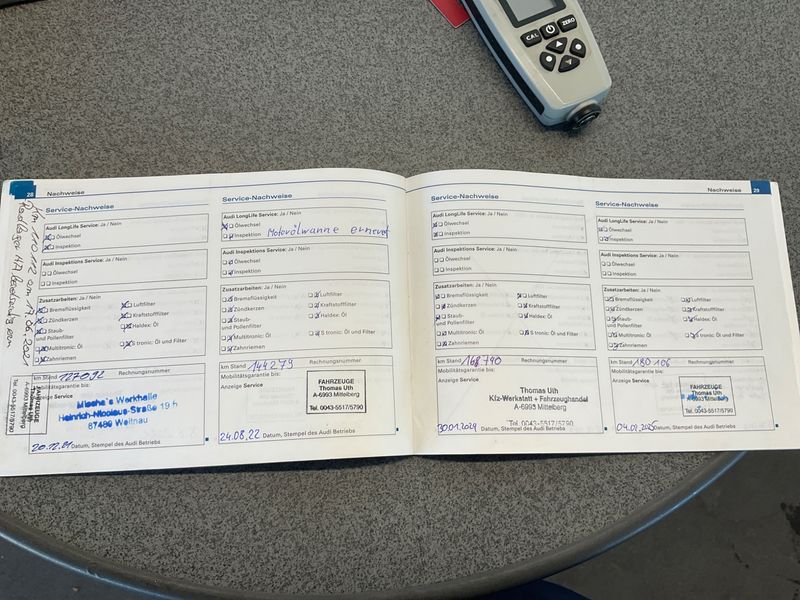 CAL
ZERO
28 Nachweise
Service-Nachweise
Audi LongLife Service: Ja / Nein
Ölwechsel
Inspektion
Audi Inspektions Service: Ja / Nein
Ölwechsel
Inspektion
Zusatzarbeiten: Ja / Nein
Bremsflüssigkeit
Luftfilter
Zündkerzen
Kraftstofffilter
Staub-
und Pollenfilter
Haldex: Öl
Multitronic: Öl
S tronic: Öl und Filter
Zahnriemen
km Stand 127092 Rechnungsnummer
Mobilitätsgarantie bis:
Anzeige Service
Mischa's Werkhalle
Heinrich-Nicolaus-Straße 19 h
87480 Weitnau
FAHRZEUGE
Thomas Uth
A-6993 Mittelberg
Tel. 0043-5517/5790
20.12.21 Datum, Stempel des Audi Betriebs
Service-Nachweise
Audi LongLife Service: Ja / Nein
Ölwechsel
Inspektion Motorölwanne erneuert
Audi Inspektions Service: Ja / Nein
Ölwechsel
Inspektion
Zusatzarbeiten: Ja / Nein
Bremsflüssigkeit
Luftfilter
Zündkerzen
Kraftstofffilter
Staub-
und Pollenfilter
Haldex: Öl
Multitronic: Öl
S tronic: Öl und Filter
Zahnriemen
km Stand 144279 Rechnungsnummer
Mobilitätsgarantie bis:
Anzeige Service
FAHRZEUGE
Thomas Uth
A-6993 Mittelberg
Tel. 0043-5517/5790
24.08.22 Datum, Stempel des Audi Betriebs
Nachweise 29
Service-Nachweise
Audi LongLife Service: Ja / Nein
Ölwechsel
Inspektion
Audi Inspektions Service: Ja / Nein
Ölwechsel
Inspektion
Zusatzarbeiten: Ja / Nein
Bremsflüssigkeit
Luftfilter
Zündkerzen
Kraftstofffilter
Staub-
und Pollenfilter
Haldex: Öl
Multitronic: Öl
S tronic: Öl und Filter
Zahnriemen
km Stand 168.790 Rechnungsnummer
Mobilitätsgarantie bis:
Anzeige Service
Thomas Uth
Kfz-Werkstatt + Fahrzeughandel
A-6993 Mittelberg
Tel. 0043-5517/5790
30.01.2024 Datum, Stempel des Audi Betriebs
Service-Nachweise
Audi LongLife Service: Ja / Nein
Ölwechsel
Inspektion
Audi Inspektions Service: Ja / Nein
Ölwechsel
Inspektion
Zusatzarbeiten: Ja / Nein
Bremsflüssigkeit
Luftfilter
Zündkerzen
Kraftstofffilter
Staub-
und Pollenfilter
Haldex: Öl
Multitronic: Öl
S tronic: Öl und Filter
Zahnriemen
km Stand 180 106 Rechnungsnummer
Mobilitätsgarantie bis:
Anzeige Service
FAHRZEUGE
Thomas Uth
A-6993 Mittelberg
Tel. 0043-5517/5790
Datum, Stempel des Audi Betriebs